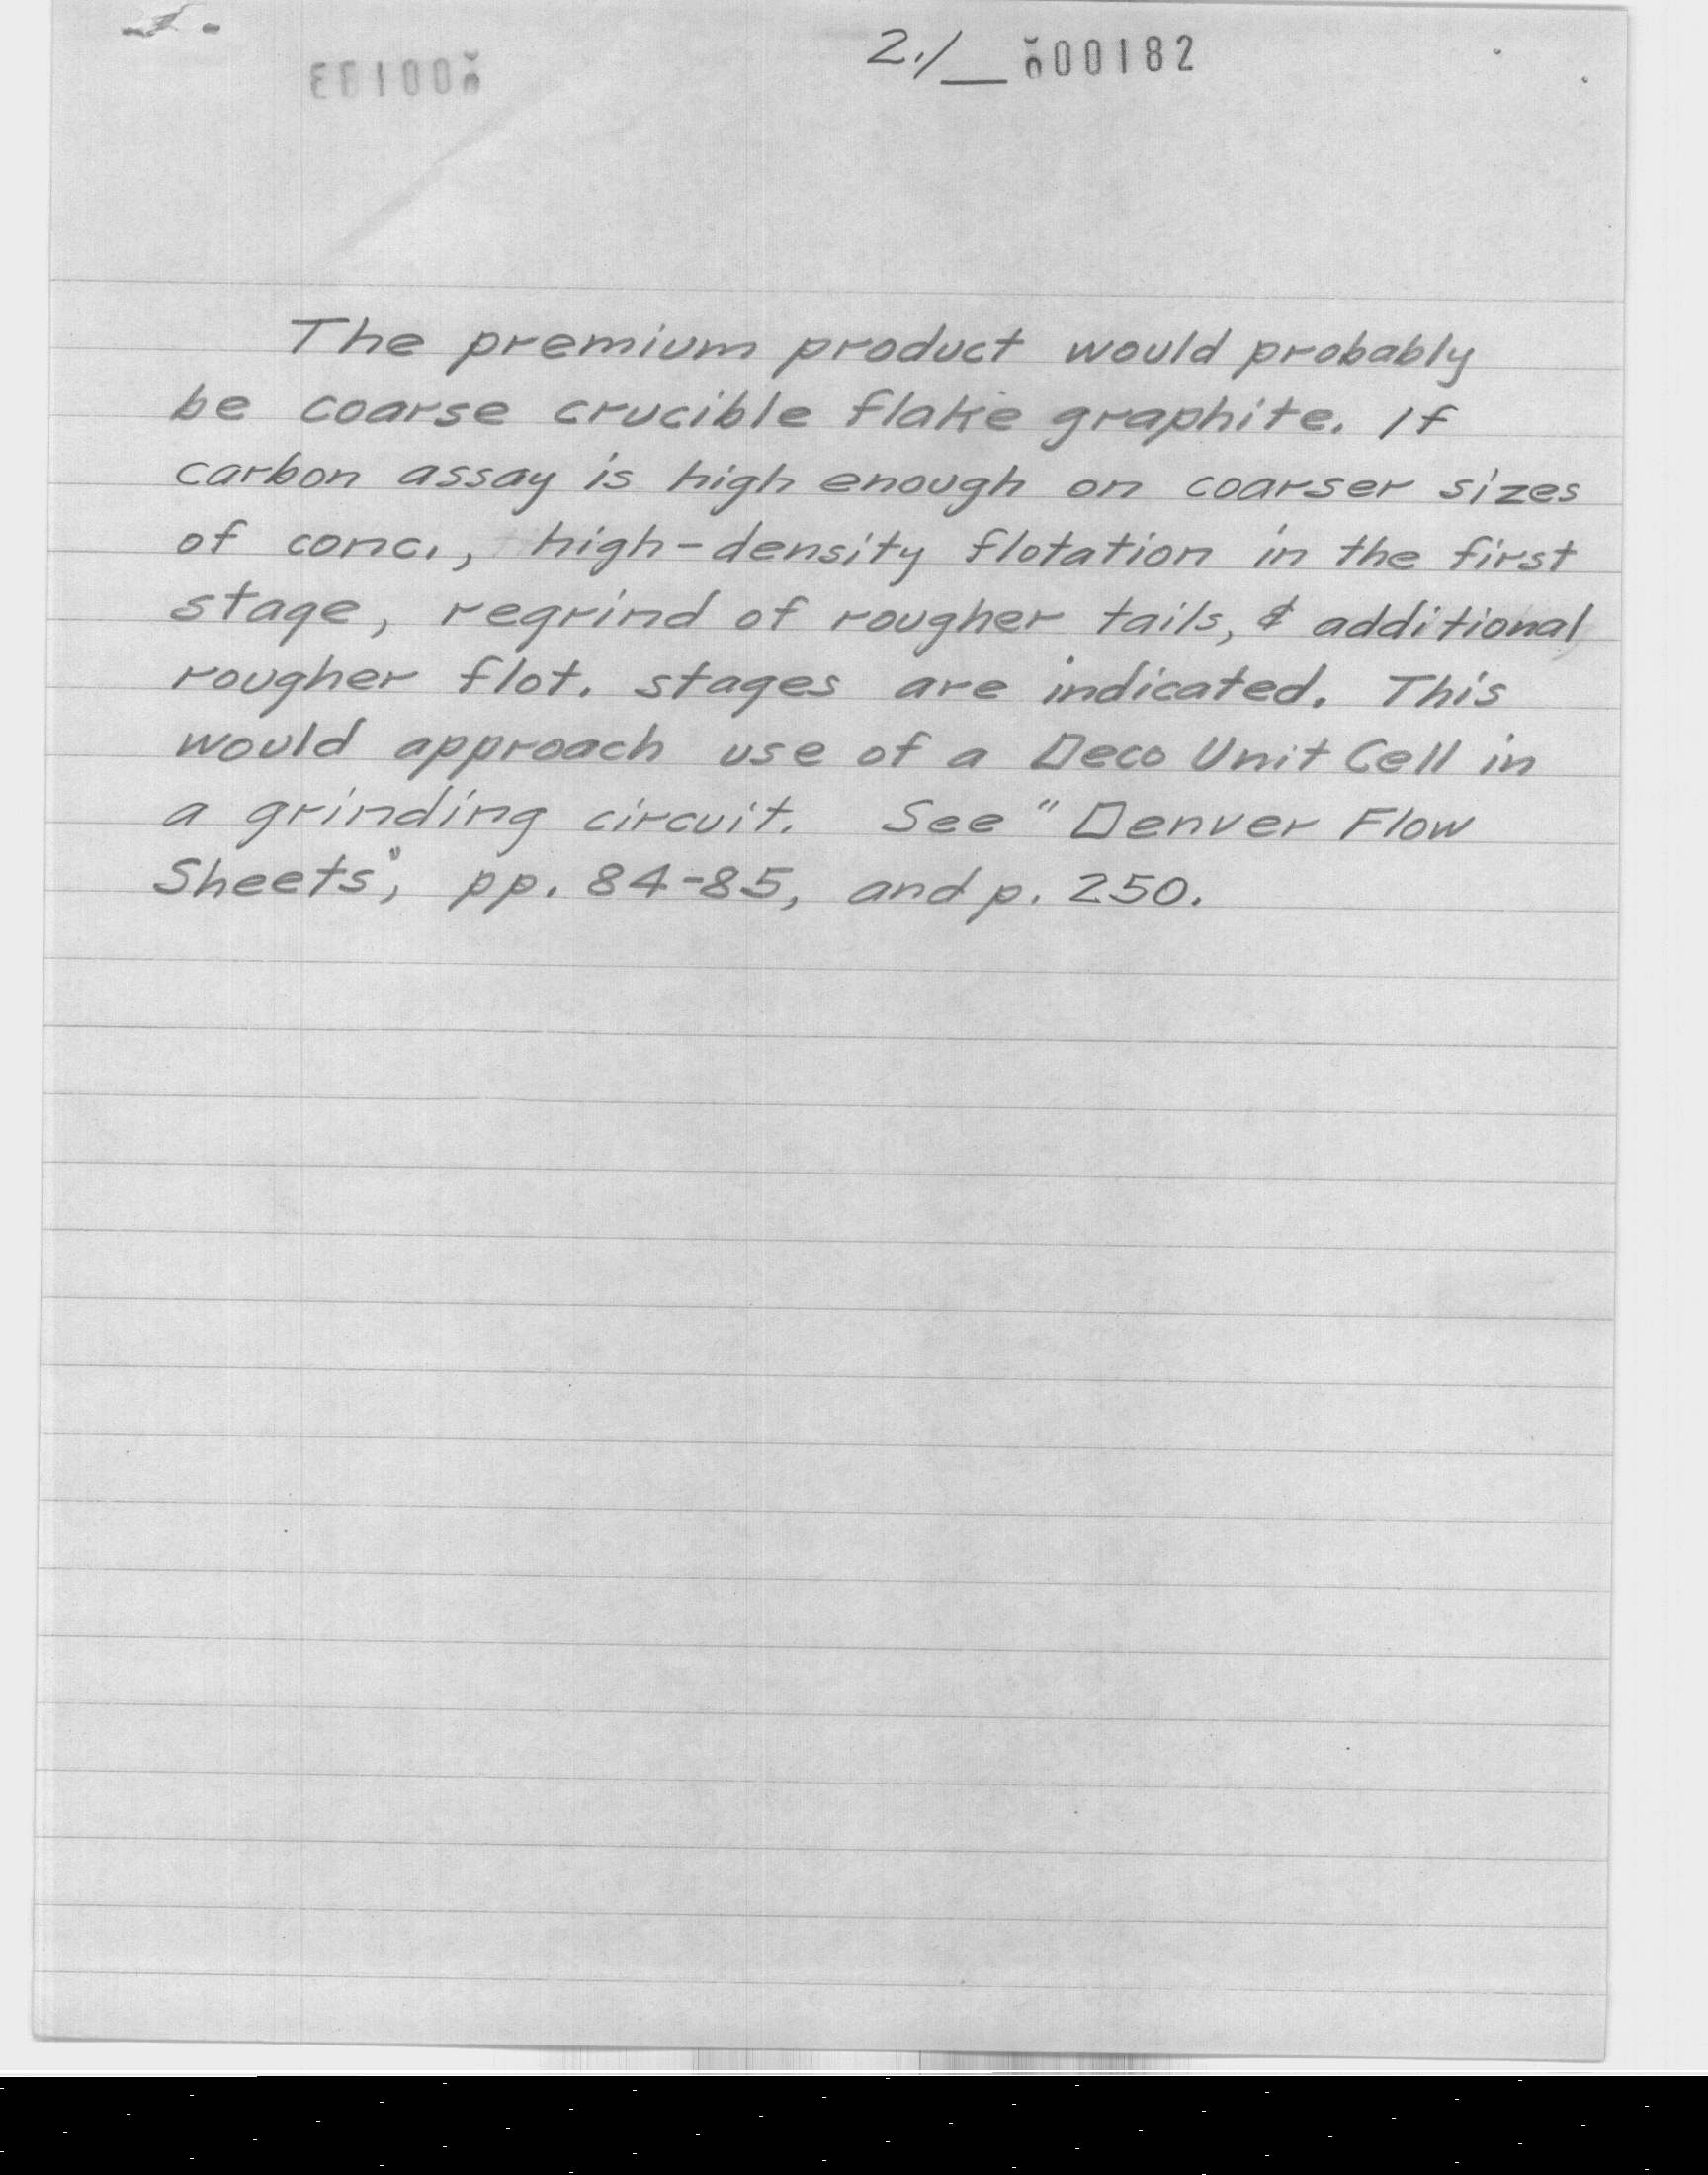 2./ 000182
The premium product would probably
be coarse crucible flake graphite. If
carbon assay is high enough on coarser sizes
of conc., high-density flotation in the first
stage, regrind of rougher tails, & additional
rougher flot. stages are indicated. This
would approach use of a Deco Unit Cell in
a grinding circuit. See "Denver Flow
Sheets", pp. 84-85, and p. 250.